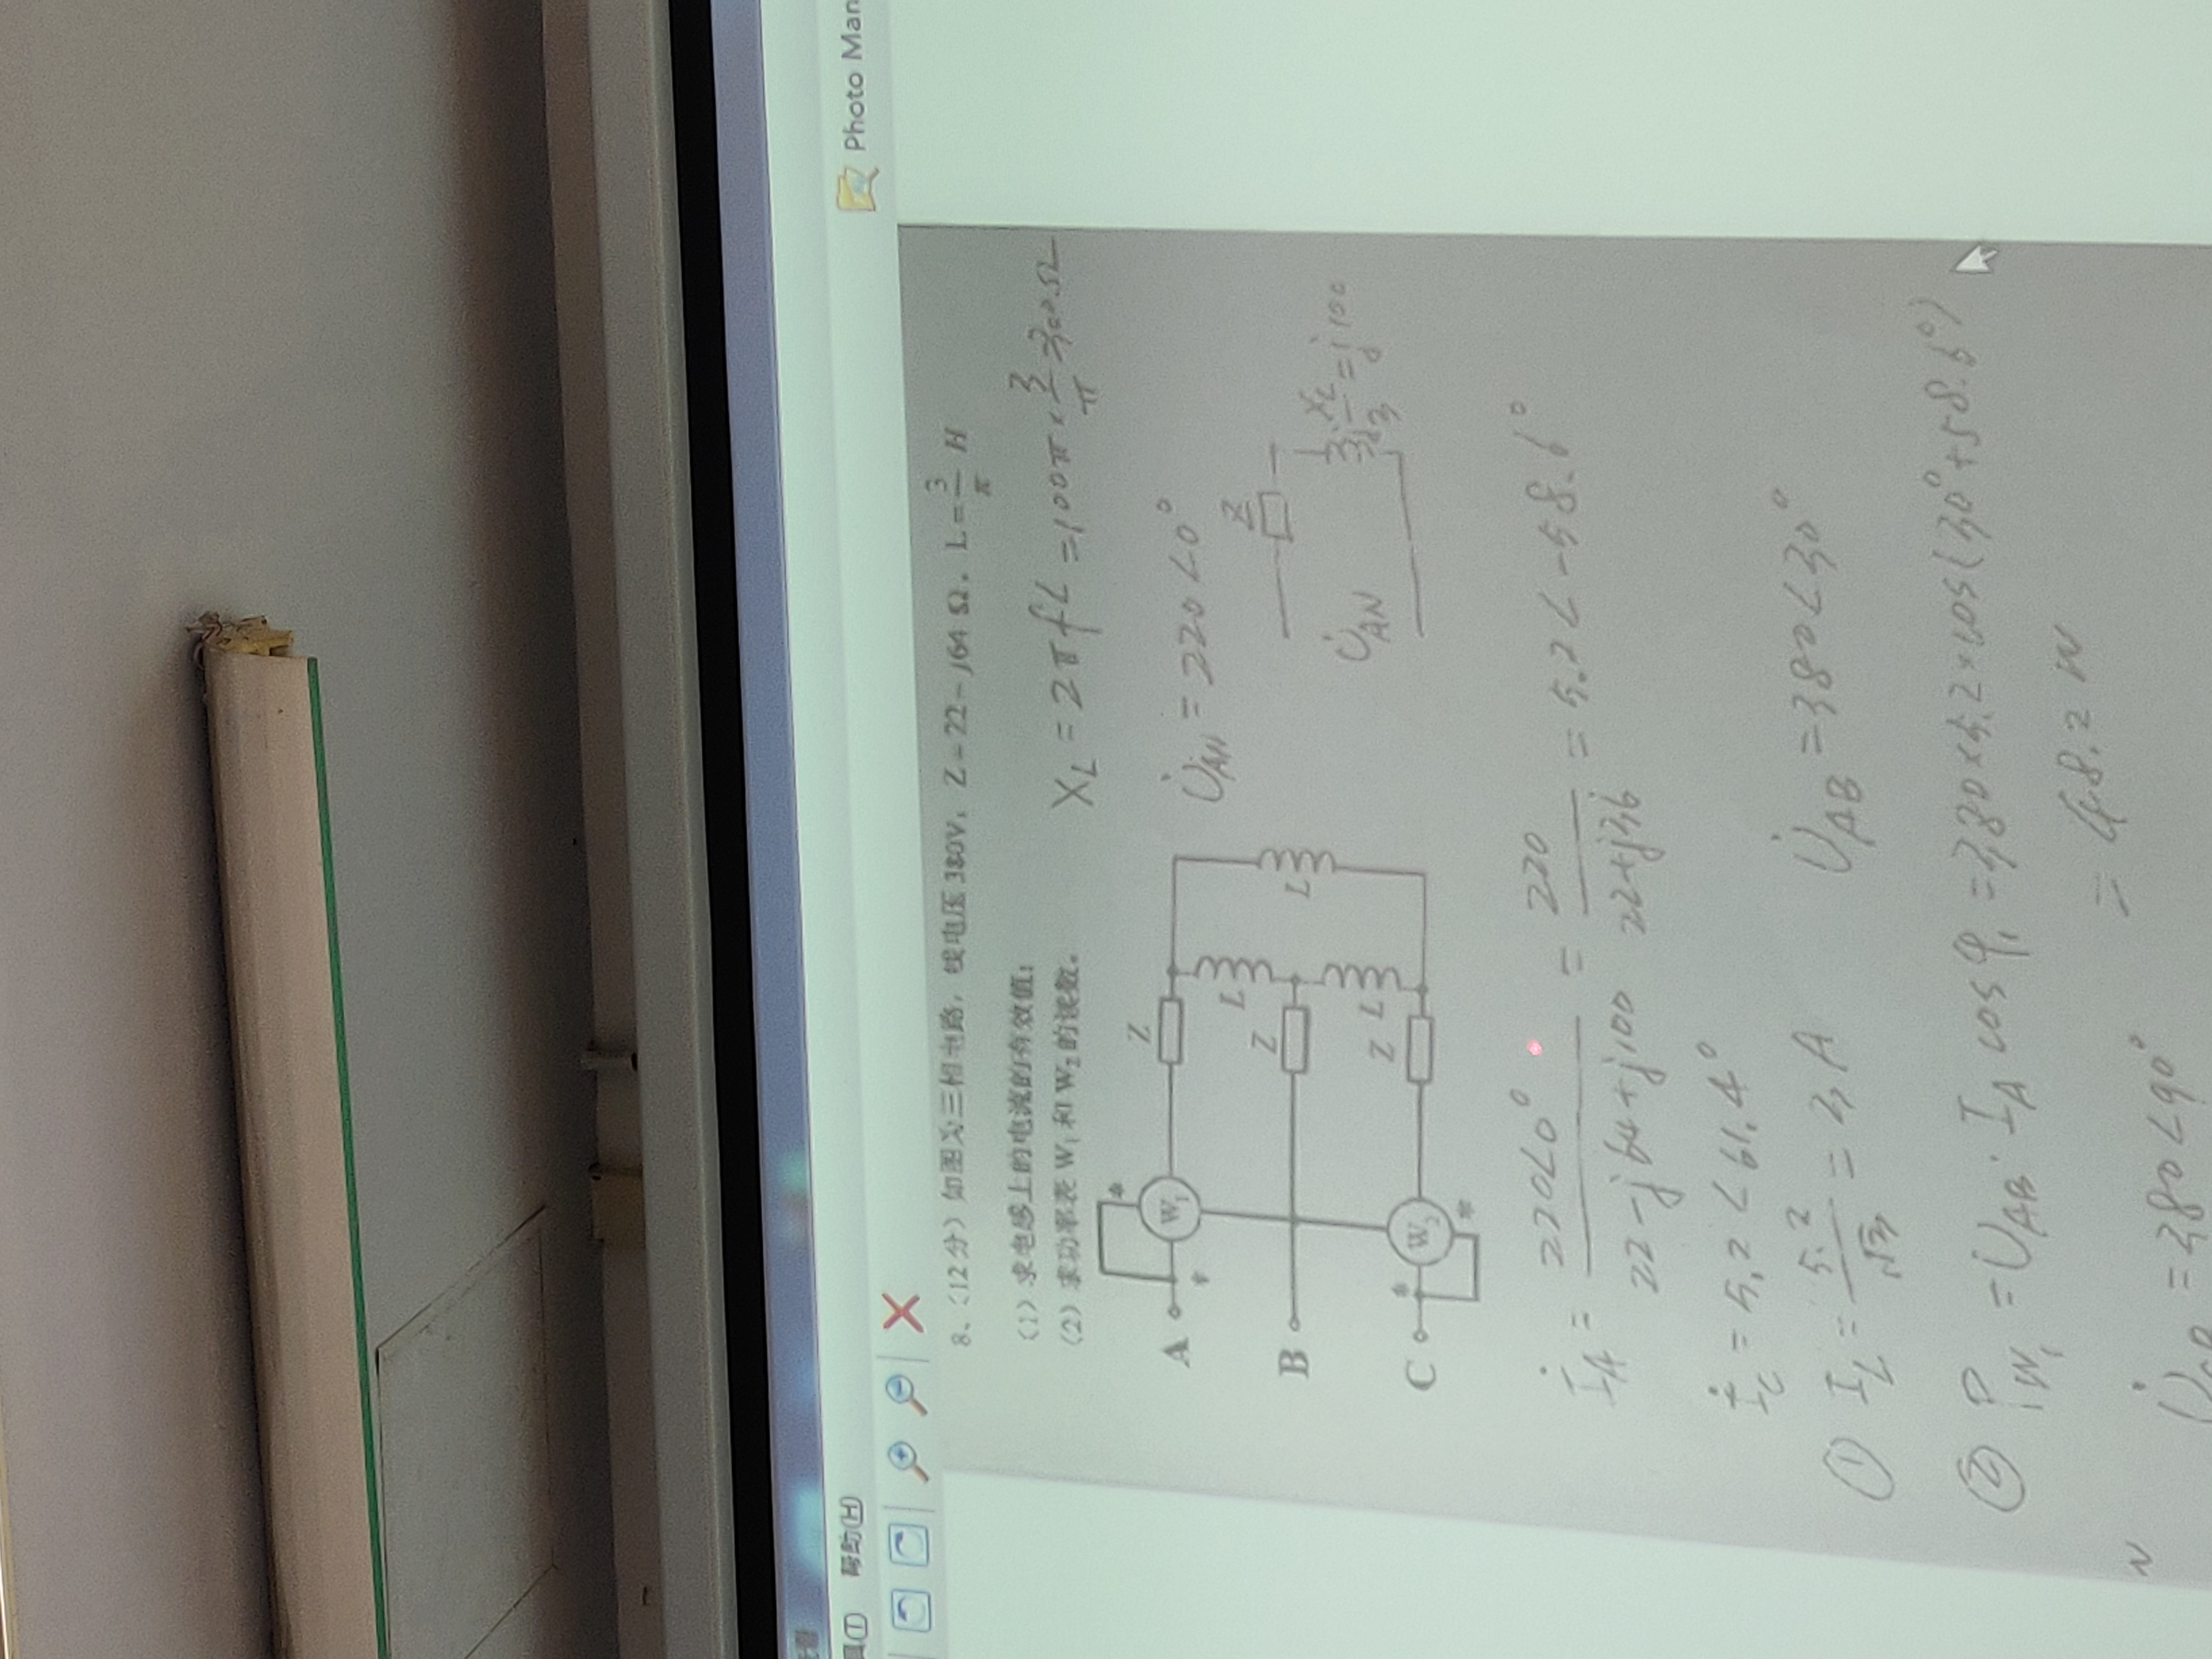 帮助(H)
Photo Man
8、(12分)如图为三相电路，线电压380V，Z=22-j64 Ω，L=3/π H
(1)求电感上的电流的有效值；
(2)求功率表W₁和W₂的读数。
X_L = 2πfL = 100π × 3/π = 300Ω
* W₁ Z
A
*
U̇_AN = 220∠0°
L
Z
B
L
Z
U̇_AN
j X_L/3 = j100
Z L
C * W₂
*
İ_A = 220∠0° / (22-j64+j100) = 220 / (22+j36) = 5.2∠-58.6°
İ_C = 5.2∠61.4°
① I_L = 5.2/√3 = 3A
U̇_AB = 380∠30°
② P_W₁ = U_AB · I_A cosφ₁ = 380×5.2×cos(30°+58.6°)
= 48.2 W
N
U̇_CB = 380∠90°